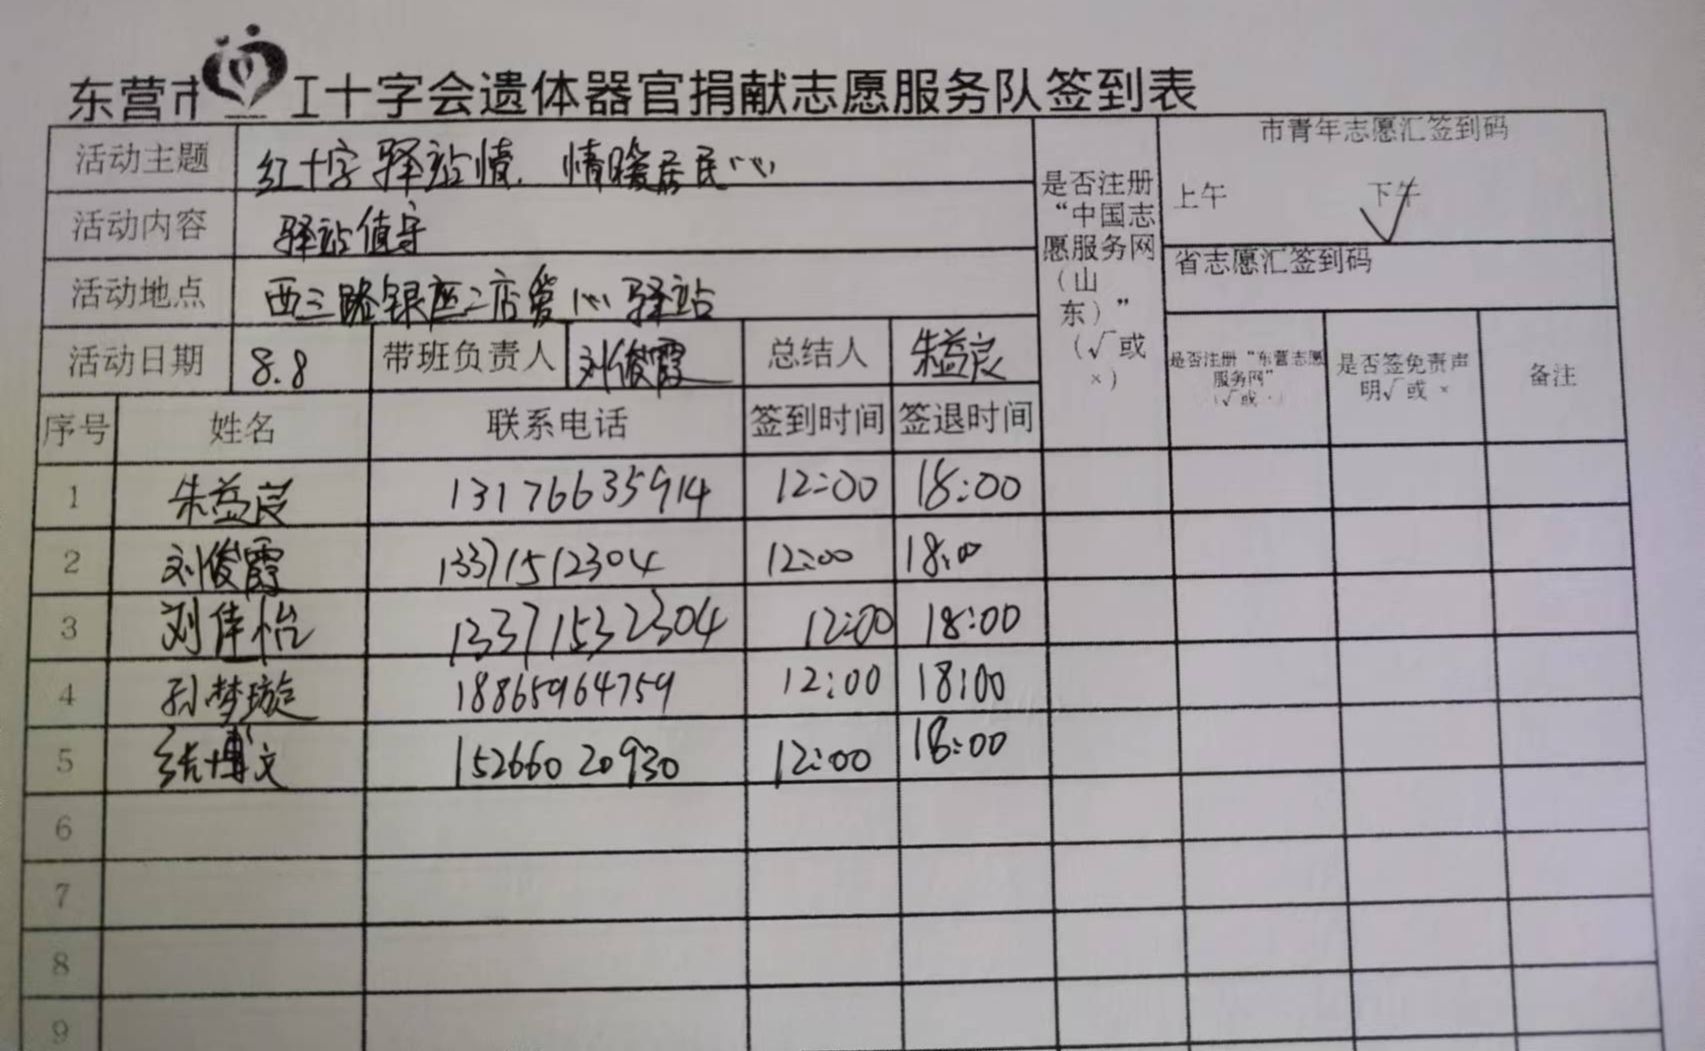 东营市 工十字会遗体器官捐献志愿服务队签到表
活动主题 红十字驿站情,情暖居民心
活动内容 驿站值守
活动地点 西三路银座二店爱心驿站
活动日期 8.8 带班负责人 刘俊霞 总结人 朱益良
是否注册
“中国志
愿服务网
(山
东)”
(√或
×)
市青年志愿汇签到码
上午 下午 √
省志愿汇签到码
是否注册“东营志愿
服务网”
(√或 ×)
是否签免责声
明√或 ×
备注
序号 姓名 联系电话 签到时间 签退时间
1 朱益良 13176635914 12:00 18:00
2 刘俊霞 13371512304 12:00 18:00
3 刘佳怡 13371532304 12:00 18:00
4 孙梦璇 18865964759 12:00 18:00
5 张博文 15266020930 12:00 18:00
6
7
8
9